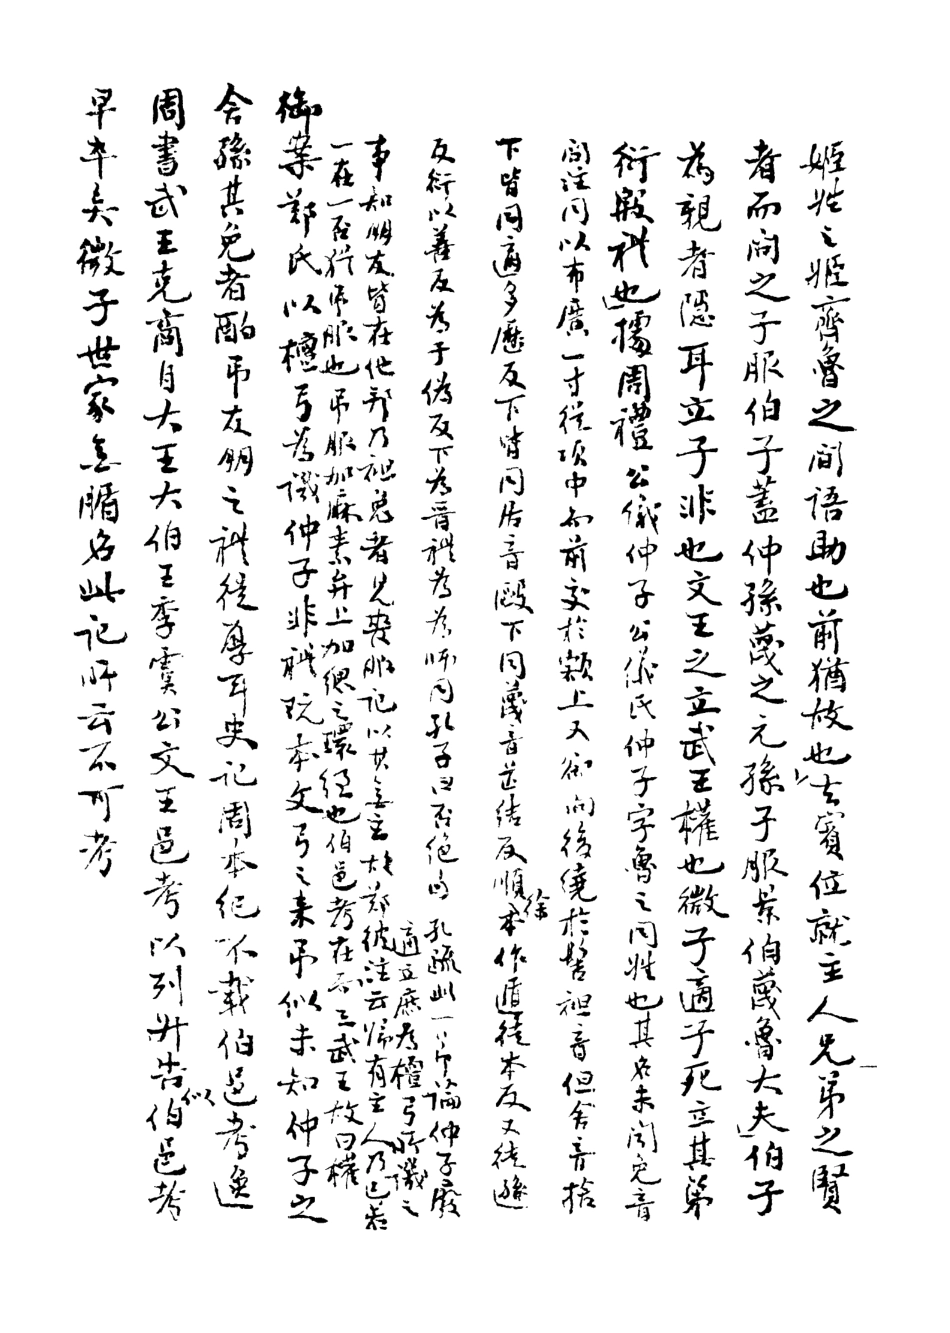 姬姓之姬齊魯之間語助也前猶故也去賓位就主人兄弟之賢
者而問之子服伯子蓋仲孫蔑之元孫子服景伯蔑魯大夫伯子
為親者隱耳立子非也文王之立武王權也微子適子死立其弟
衍殷禮也據周禮公儀仲子公儀氏仲子字魯之同姓也其名未聞免音
問注同以布廣一寸從項中而前交於額上又卻向後繞於髻袒音但舍音捨
下皆同適多歷反下皆同居音
下同蔑音
結反順徐本作遁徒本反又徒遜
反衍以善反為于偽反下為晉禮為為師同孔子曰否絶句孔疏此一節論仲子廢
適立庶為檀弓所譏之
事知朋友皆在他邦乃袒免者見喪服記以其無主故鄭彼注云歸有主人乃已
一在一否
弔服也弔服加麻素弁上加緦之環絰也伯邑考在
武王故曰權
御案鄭氏以檀弓為譏仲子非禮玩本文弓之来弔似未知仲子之
舍孫其免者酌弔友朋之禮從厚耳史記周本紀不載伯邑考
周書武王克商自大王大伯王季虞公文王邑考以列升告似伯邑考
早卒矣微子世家無腯名此記所云不可考